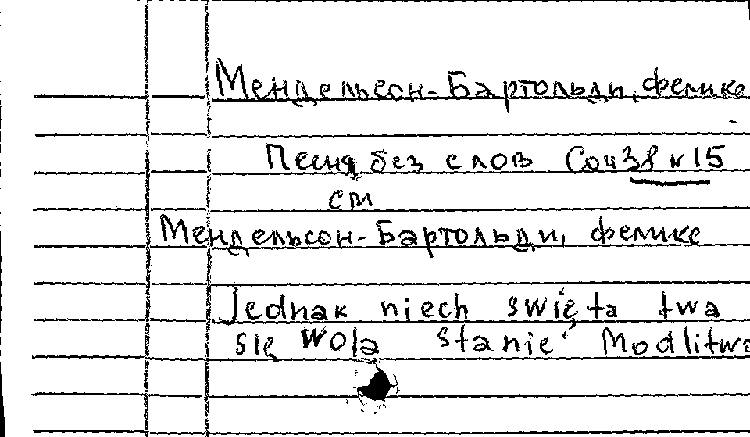 Мендельсон-Бартольди, Феликс
Песня без слов Соч 38 № 15
см
Мендельсон-Бартольди, Феликс
Jednak niech święta twa
się wola stanie Modlitwa